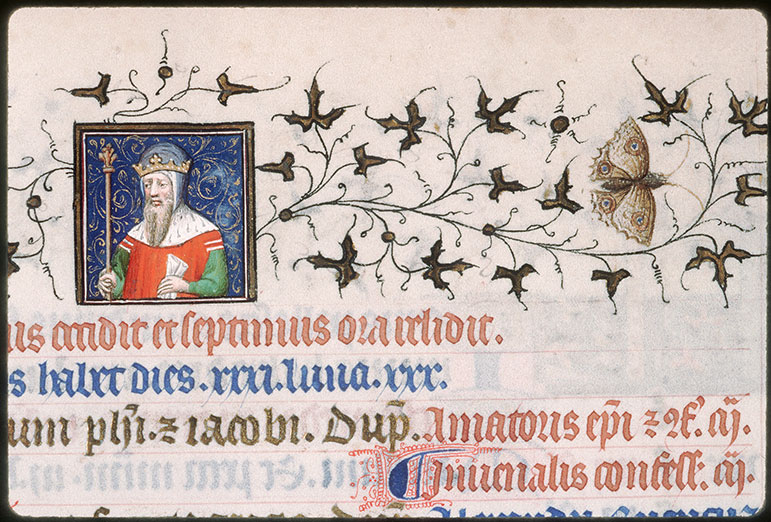 us occidit et septimus ora relidit.
s habet dies. xxxi. luna. xxx.
um phi. ⁊ iacobi. Dup. Amatoris epi ⁊ 9f. iij.
Iuuenalis confess. iij.